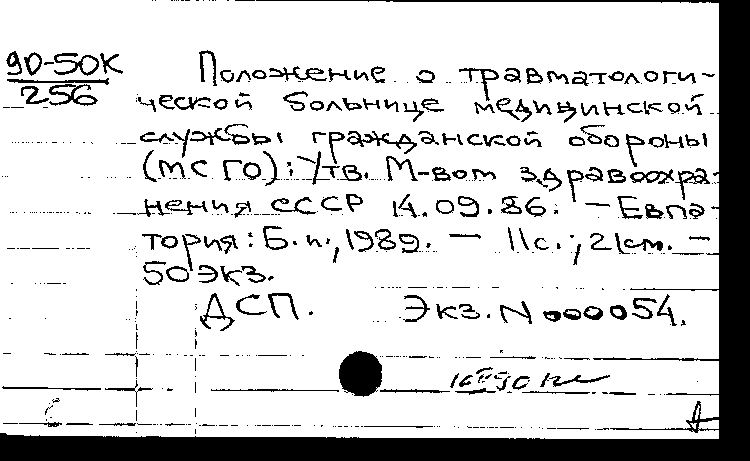 90-50К
256
Положение о травматологи-
ческой больнице медицинской
службы гражданской обороны
(МС ГО): Утв. М-вом здравоохра-
нения СССР 14.09.86. — Евпа-
тория: Б.и., 1989. — 11с.; 21см. —
50экз.
ДСП. Экз. N 000054.